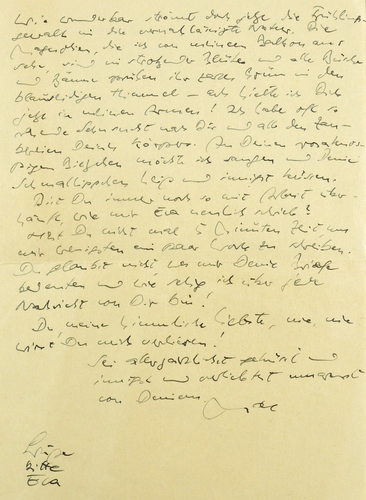 Wie wunderbar strömt doch jetzt die Frühlings-
gewalt in die vernachlässigte Natur. Die
Magnolien, die ich von meinem Balkon aus
sehe, sind in strotzender Blüte und alle Büsche
und Bäume ihr zartes Grün in den
Himmel – ach hielte ich Dich
jetzt in meinen Armen! Ich habe oft so
Sehnsucht nach Dir und all den Zau-
bereien Deines Körpers. An Deinen
möchte ich saugen und Deine
heiß und innigst küssen.
Bist Du immer noch so mit Arbeit über-
häuft, wie mir Eva neulich schrieb?
Hast Du nicht mal 5 Minuten Zeit um
mir wenigstens ein paar Worte zu schreiben.
Du glaubst nicht was mir Deine Briefe
bedeuten und wie selig ich über jede
Nachricht von Dir bin!
Du meine himmlische Liebste, nie, nie
wirst Du mich verlieren!
Sei allerzärtlichst geküsst und
innigst und verliebtest umarmt
von Deinem
Grüße
bitte
Eva